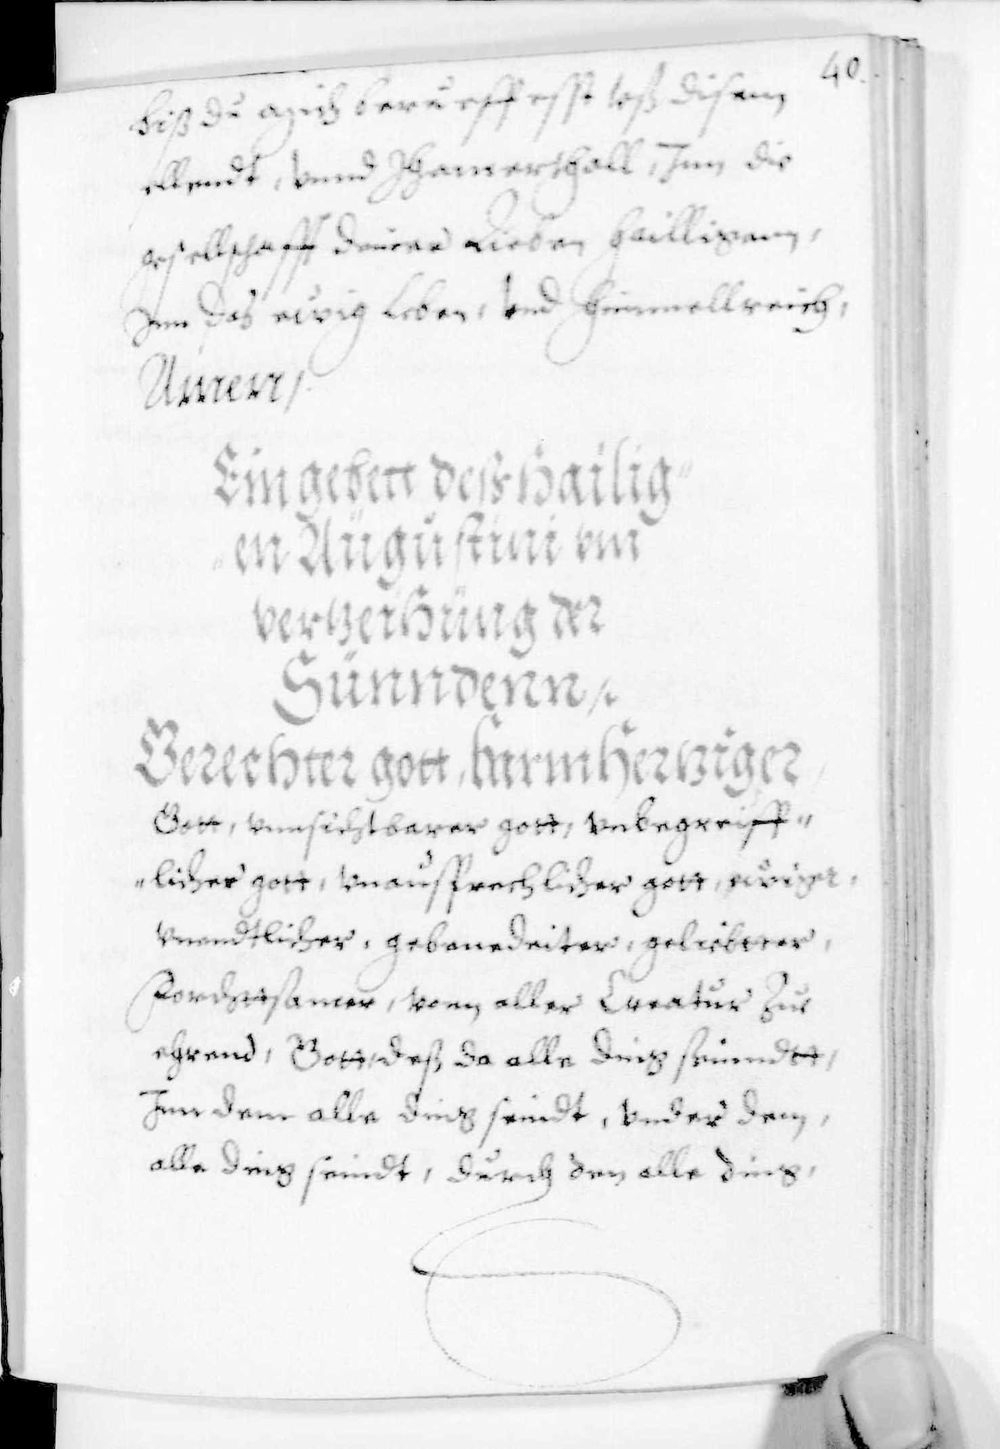 40.
biß du mich berueffest auß disem
ellendt, vnnd Jhamerthall, Inn die
gesellschafft deiner Lieben Heilligenn,
Inn das ewig Leben, vnd himmellreich,
Amen /.
Ein gebett deß Hailig=
=en Augustini vm
vertzeihung der
Sünndenn /.
Gerechter gott, barmhertziger,
Gott, vnnsichtbarer gott, vnbegreiff=
=licher gott, vnaussprechlicher gott, ewiger,
vnendtlicher, gebenedeiter, geliebtter,
forchttsamer, vonn aller Creatur zue
ehrend, Gott, deß da alle ding seinndtt,
Inn dem alle ding seindt, vnder dem,
alle ding seindt, durch den alle ding,